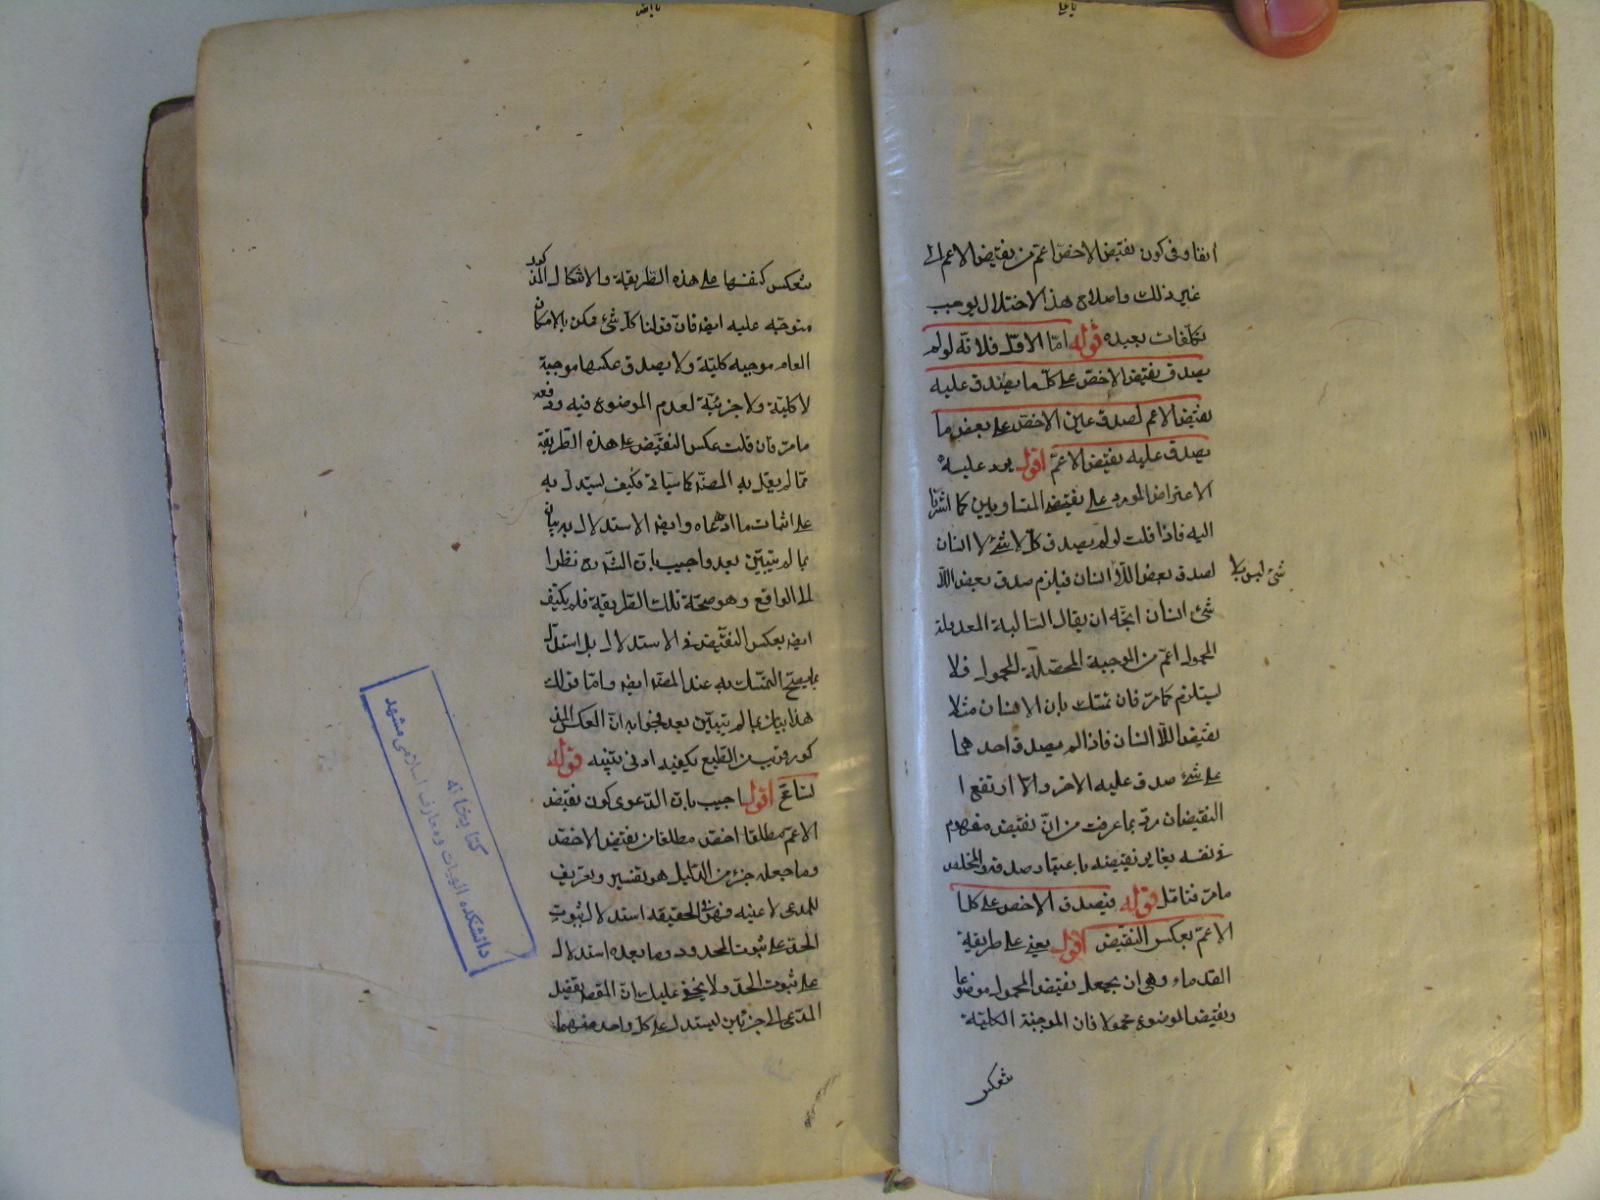 آنفا وفى كون نقيض الاخص اعم من نقيض الاعم الى
غير ذلك واصلاح هذا الاختلال يوجب
تكلفات بعيدة قوله اما الاول فلانه لو لم
يصدق نقيض الاخص على كل ما يصدق عليه
نقيض الاعم لصدق عين الاخص على بعض ما
يصدق عليه نقيض الاعم اقول يرد عليه
الاعتراض المورد على نقيض المتساويين كما اشرنا
اليه فاذا قلت لو لم يصدق كل لا شئ لا انسان
لصدق بعض اللا انسان فيلزم صدق بعض اللا
شئ ليس بلا
شئ انسان اتجه ان يقال السالبة المعدولة
المحمول اعم من الموجبة المحصلة المحمول فلا
يستلزم كما مر فان تمسك بان الانسان مثلا
نقيض اللا انسان فاذا لم يصدق احدهما
على شئ صدق عليه الاخر والا ارتفع
النقيضان مر بما عرفت من ان نقيض مفهوم
فى نفسه يغاير نقيضه باعتبار صدقه
ما مر فتامل قوله فيصدق الاخص على كل
الاعم بعكس النقيض اقول يعنى على طريقة
القدماء وهى ان يجعل نقيض المحمول موضوعا
ونقيض الموضوع محمولا فان الموجبة الكلية
تنعكس
تنعكس كنفسها على هذه الطريقة والاشكال المذكور
متوجه عليه ايضا فان قولنا كل شئ ممكن بالامكان
العام موجبة كلية ولا يصدق عكسها موجبة
لا كلية ولا جزئية لعدم الموضوع فيه ودفعه
ما مر فان قلت عكس النقيض على هذه الطريقة
مما لم يقل به المصنف كما سياتى فكيف يستدل به
على اثبات ما ادعاه وايضا الاستدلال به بيان
بما لم يتبين بعد واجيب بان الشارح نظر
الى الواقع وهو صحة تلك الطريقة فلم يكتف
ايضا بعكس النقيض فى الاستدلال بل استدل
بما يصح التمسك به عند المصنف ايضا واما قولك
هذا بيان بما لم يتبين بعد فجوابه ان العكس المذ
كور قريب من الطبع يكفيه ادنى تنبيه قوله
اقول اجيب بان الدعوى كون نقيض
الاعم مطلقا اخص مطلقا من نقيض الاخص
وما جعله جزء من الدليل هو تفسير وتعريف
للمدعى لا عينه فهو فى الحقيقة استدلال بثبوت
الحد على ثبوت المحدود وما بعده استدلال
على ثبوت الحد ولا يخفى عليك ان المقصد تفصيل
المدعى الى جزئين ليستدل على كل واحد منهما
كتابخانه
دانشكده الهيات ومعارف اسلامى مشهد